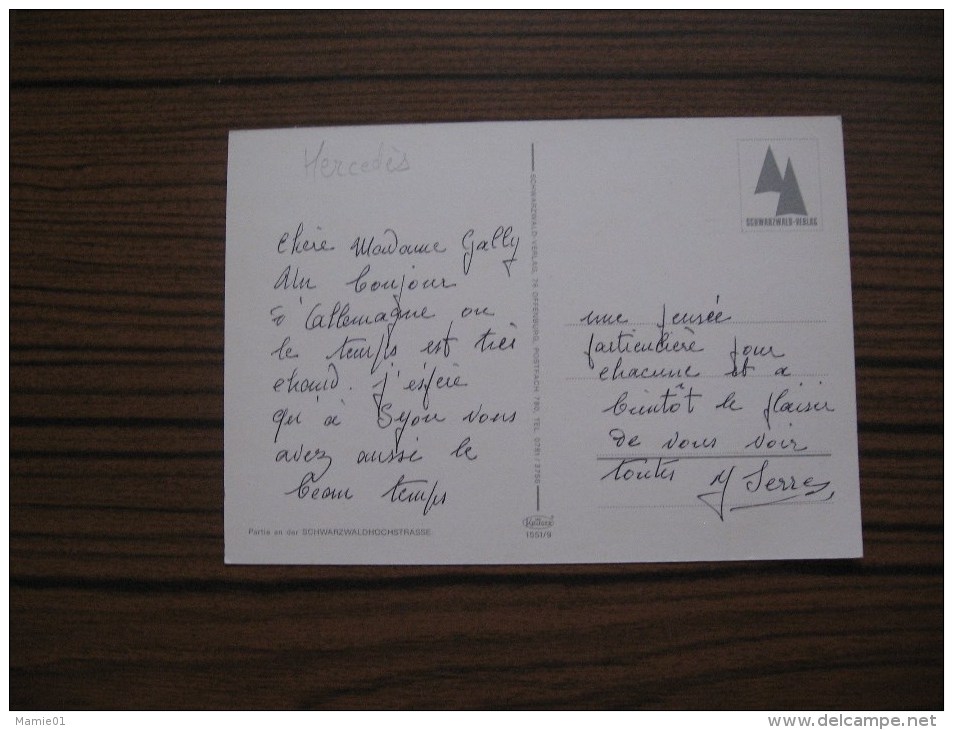 Mercedès
Chère Madame Gally
Un bonjour
d'Allemagne ou
le temps est très
chaud. J'espère
qu'à Lyon vous
avez aussi le
beau temps
Partie an der SCHWARZWALDHOCHSTRASSE
SCHWARZWALD-VERLAG, 76 OFFENBURG, POSTFACH 780, TEL. 0781/3750
1551/9
SCHWARZWALD-VERLAG
une pensée
particulière pour
chacune et a
bientôt le plaisir
de vous voir
toutes M Serres
Mamie01
www.delcampe.net